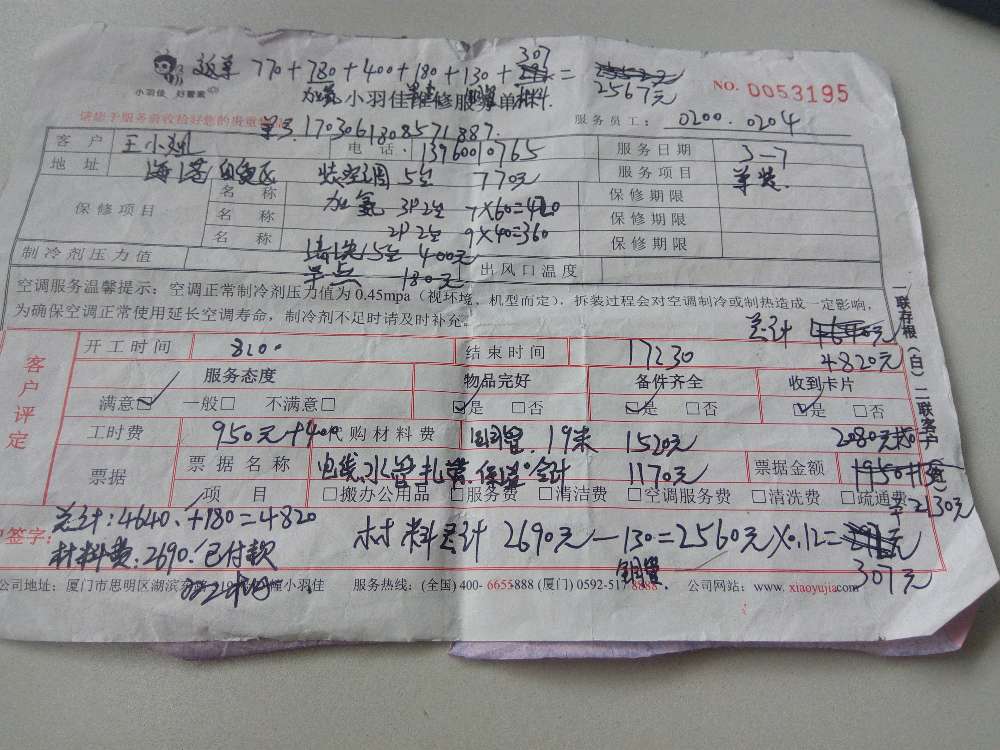 返单 770+780+400+180+130+307=
2567元
小羽佳 好管家
加氨 小羽佳维修服务单
NO. 0053195
请您于服务前收检好您的贵重物品
单号 1703061808571887.
服务员工: 0200.0204
客 户 王小姐 电 话 13960010765 服务日期 3-7
地 址 海沧 装空调 5台 770元 服务项目 单装.
保修项目 名 称 加氨 3P2台 7×60=420 保修期限
名 称 2P2台 9×40=360 保修期限
名 称 保修期限
制冷剂压力值 5台 400元 出风口温度
180元
空调服务温馨提示: 空调正常制冷剂压力值为 0.45mpa (视环境、机型而定), 拆装过程会对空调制冷或制热造成一定影响,
为确保空调正常使用延长空调寿命, 制冷剂不足时请及时补充。
总计 4640元
4820元
客户评定
开工时间 8:00 结束时间 17:30
服务态度 物品完好 备件齐全 收到卡片
满意☑ 一般□ 不满意□ ☑是 □否 ☑是 □否 ☑是 □否
工时费 950元+400 代购材料费 铜管. 19米 1520元 2080元
票据 票据名称 电线.水管.扎带.保温 合计 1170元 票据金额 1950+
项 目 □搬办公用品 □服务费 □清洁费 □空调服务费 □清洗费 □疏通费
2130元
总计:4640.+180=4820
户签字:
材料费:2690.已付款
材料总计 2690元-130=2560元×0.12=
铜管
307元
公司地址: 厦门市思明区湖滨 幢小羽佳 服务热线: (全国) 400-6655888 (厦门) 0592-5178888 公司网站: www.xiaoyujia.com
一联存根(白) 二联客户